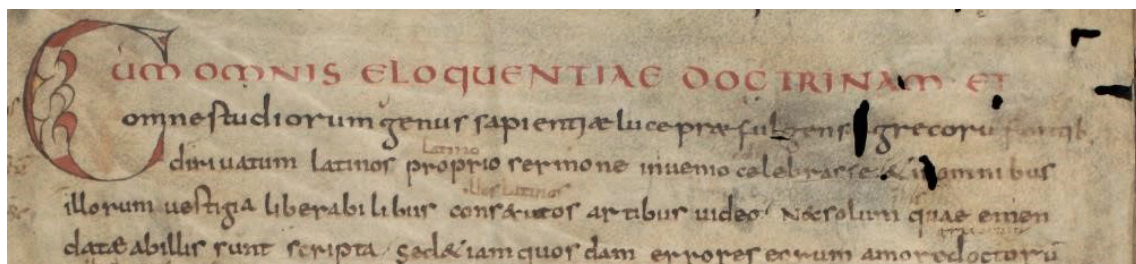 CUM OMNIS ELOQUENTIAE DOCTRINAM ET
omne studiorum genus sapientiae luce praefulgens grecorũ fontib
latino
diriuatum latinos proprio sermone inuenio celebrasse & in omnibus
illos latinos
illorum uestigia liberabilibus cons&utos artibus uideo. Nec solum quae emen
datae ab illis sunt scripta. Sed &iam quosdam errores eorum amore doctorũ